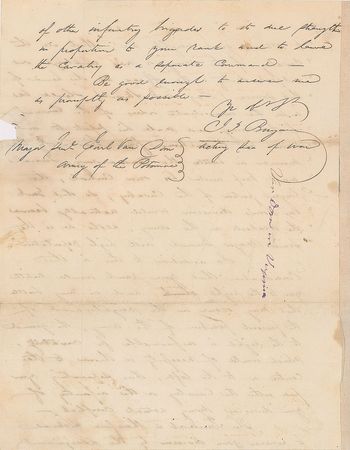 of other infantry brigades to it due strength
in proportion to your rank and to leave
the Cavalry as a separate Command —
Be good enough to answer me
as promptly as possible —
Yr Obt St
J. P. Benjamin
Major Genl Earl Van Dorn acting Sec of War
Army of the Potomac
Van Dorn in Virginia